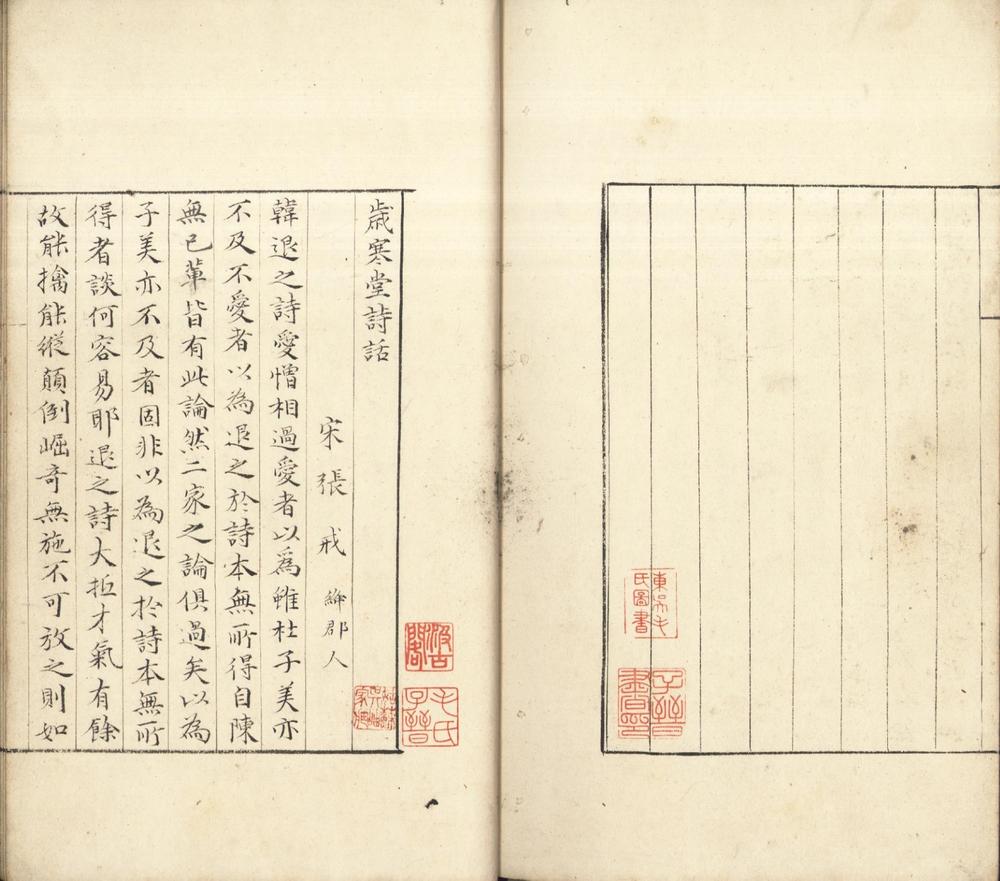 東吳毛氏圖書
子晉書印
汲古閣
毛氏子晉
歳寒堂詩話
宋 張 戒 絳郡人
韓退之詩愛憎相過愛者以爲雖杜子美亦
不及不愛者以為退之於詩本無所得自陳
無已輩皆有此論然二家之論俱過矣以為
子美亦不及者固非以為退之於詩本無所
得者談何容易耶退之詩大抵才氣有餘
故能擒能縱顛倒崛奇無施不可放之則如